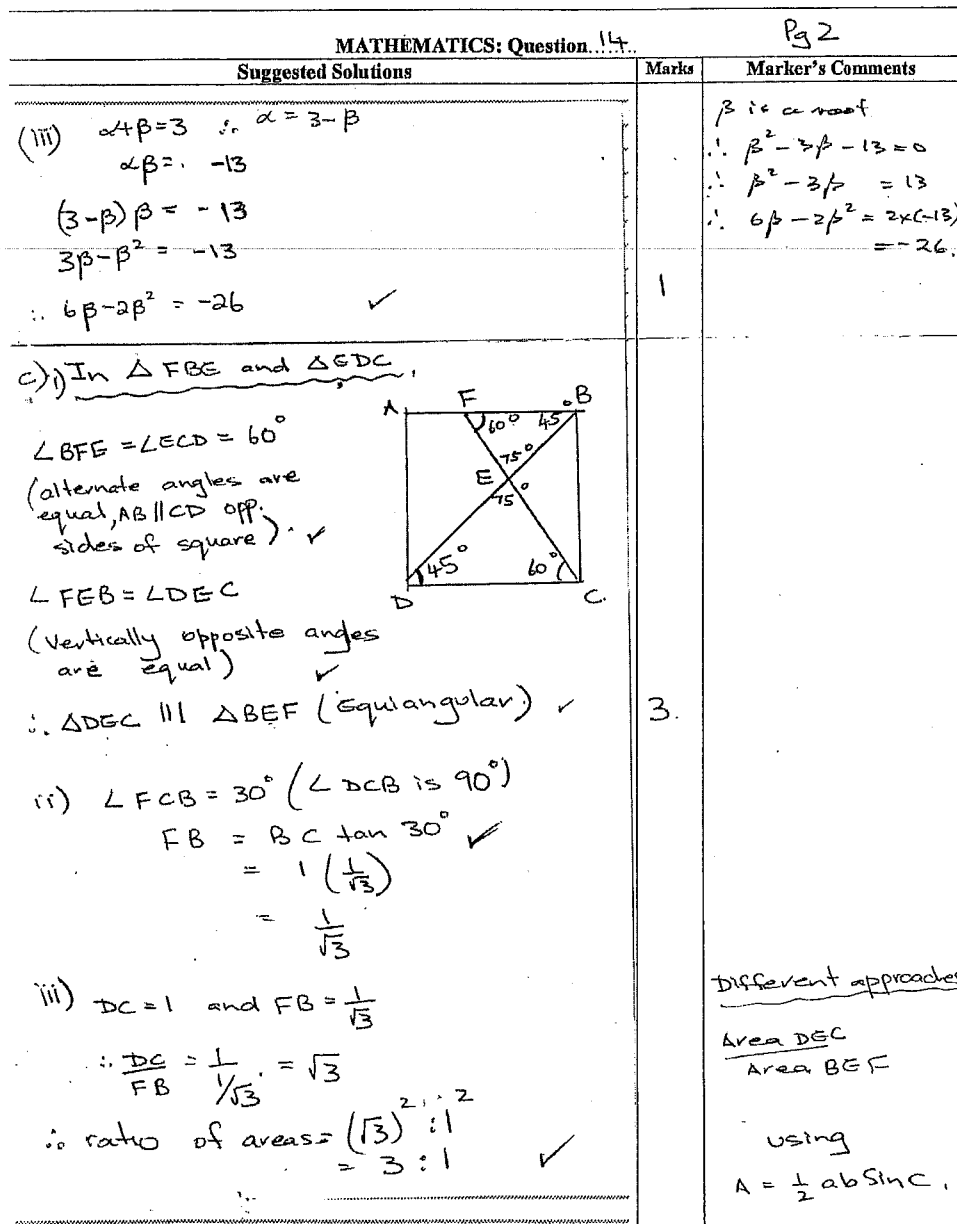 Pg 2
MATHEMATICS: Question 14
Suggested Solutions
Marks
Marker's Comments
(iii) α+β=3 ∴ α = 3-β
αβ = -13
(3-β)β = -13
3β-β² = -13
∴ 6β-2β² = -26 ✓
1
β is a root
∴ β²-3β-13=0
∴ β²-3β = 13
∴ 6β-2β² = 2×(-13)
= -26.
c) i) In Δ FBE and ΔEDC,
∠BFE = ∠ECD = 60°
(alternate angles are
equal, AB || CD opp.
sides of square). ✓
∠FEB = ∠DEC
(vertically opposite angles
are equal) ✓
∴ ΔDEC ||| ΔBEF (Equiangular) ✓
3.
A F B
60° 45°
75°
E
75°
45° 60°
D C
ii) ∠FCB = 30° (∠DCB is 90°)
FB = BC tan 30° ✓
= 1 (1/√3)
= 1/√3
iii) DC = 1 and FB = 1/√3
∴ DC/FB = 1/(1/√3) = √3
∴ ratio of areas = (√3)² : 1²
= 3 : 1 ✓
Different approaches
Area DEC
Area BEF
using
A = ½ ab Sin C.